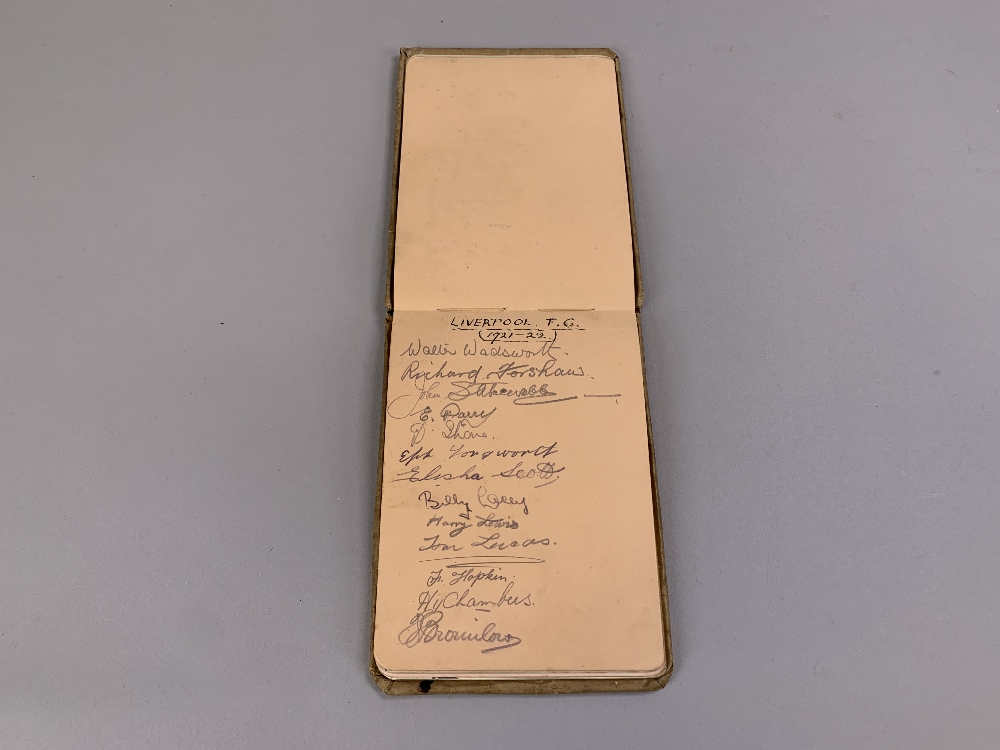 LIVERPOOL. F.C.
(1921-22)
Walter Wadsworth.
Richard Forshaw.
John
E. Parry
D. Shone.
Eph Longworth
Elisha Scott.
Billy Lacey
Harry Lewis
Tom Lucas.
F. Hopkin.
Hy Chambers.
Bromilow